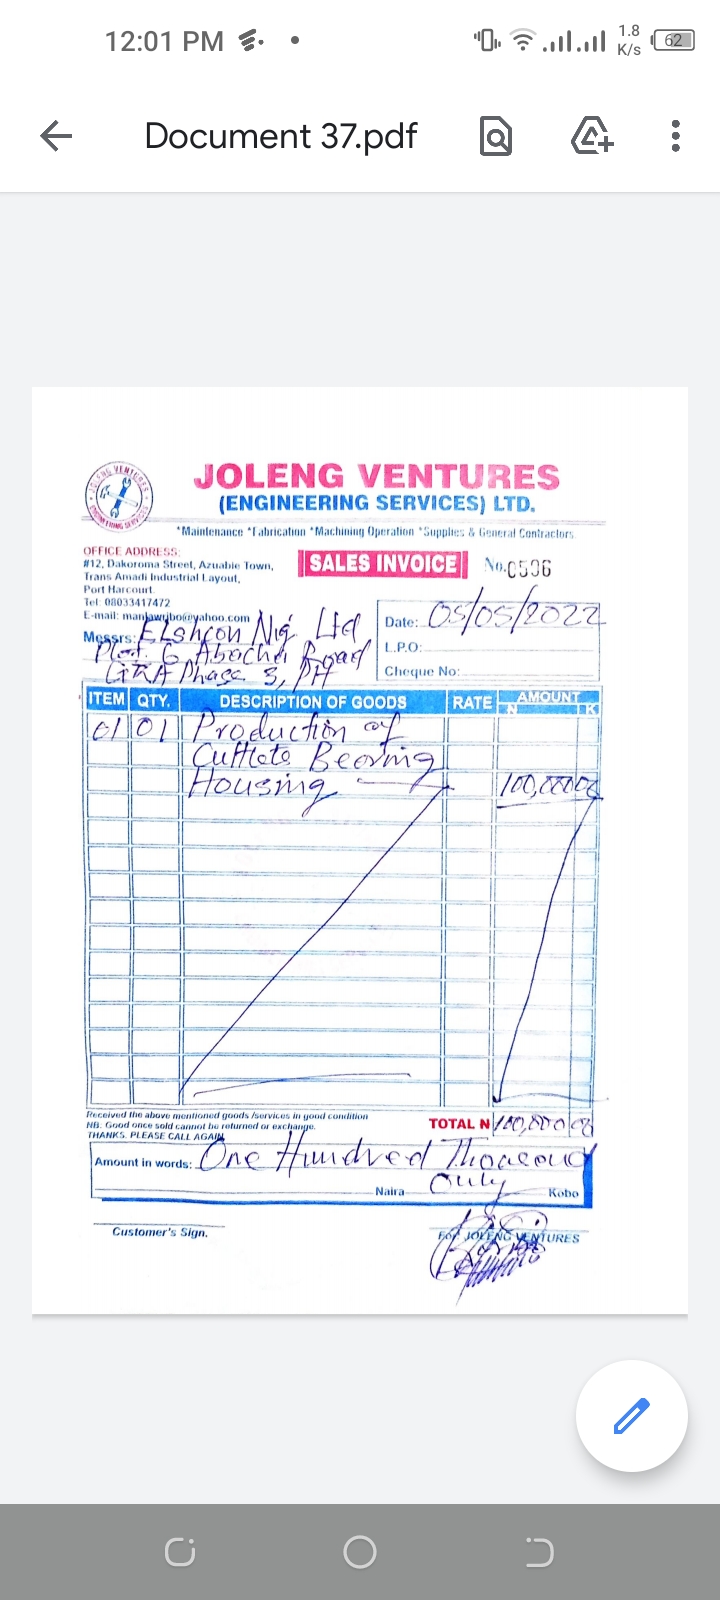 12:01 PM
1.8
K/s
62
Document 37.pdf
JOLENG VENTURES
ENGINEERING SERVICES
JOLENG VENTURES
(ENGINEERING SERVICES) LTD.
*Maintenance *Fabrication *Machining Operation *Supplies & General Contractors
OFFICE ADDRESS:
#12, Dakoroma Street, Azuabie Town,
Trans Amadi Industrial Layout,
Port Harcourt.
Tel: 08033417472
E-mail: manlawribo@yahoo.com
SALES INVOICE
No. 0596
Messrs: Elshcon Nig Ltd
Plot. 6, Abacha Road
GRA Phase 3, PH
Date: 05/05/2022
L.P.O:
Cheque No:
ITEM QTY. DESCRIPTION OF GOODS RATE AMOUNT
N K
01 01 Production of
Bearing
Housing 100,000
Received the above mentioned goods /services in good condition
NB: Good once sold cannot be returned or exchange.
THANKS. PLEASE CALL AGAIN
TOTAL N 100,000
Amount in words: One Hundred Thousand
Naira Only Kobo
Customer's Sign.
For JOLENG VENTURES